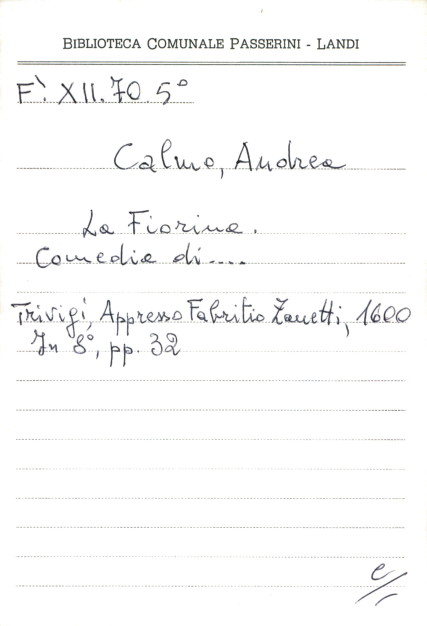 BIBLIOTECA COMUNALE PASSERINI - LANDI
F`. XII. 70. 5°
Calmo, Andrea
La Fiorina.
Comedia di....
Trivigi, Appresso Fabritio Zanetti, 1600
In 8°, pp. 32
e//